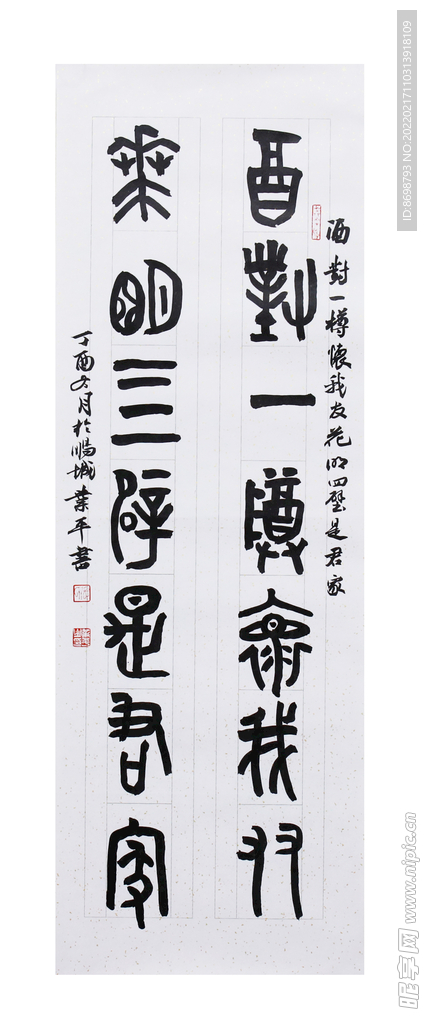 酒對一樽懷我友花明四壁是君家
酉對一樽褱我友
華明三辟是君家
丁酉冬月於鳳城業平書
ID:8698793 NO:20220217110313918109
昵享网 www.nipic.cn